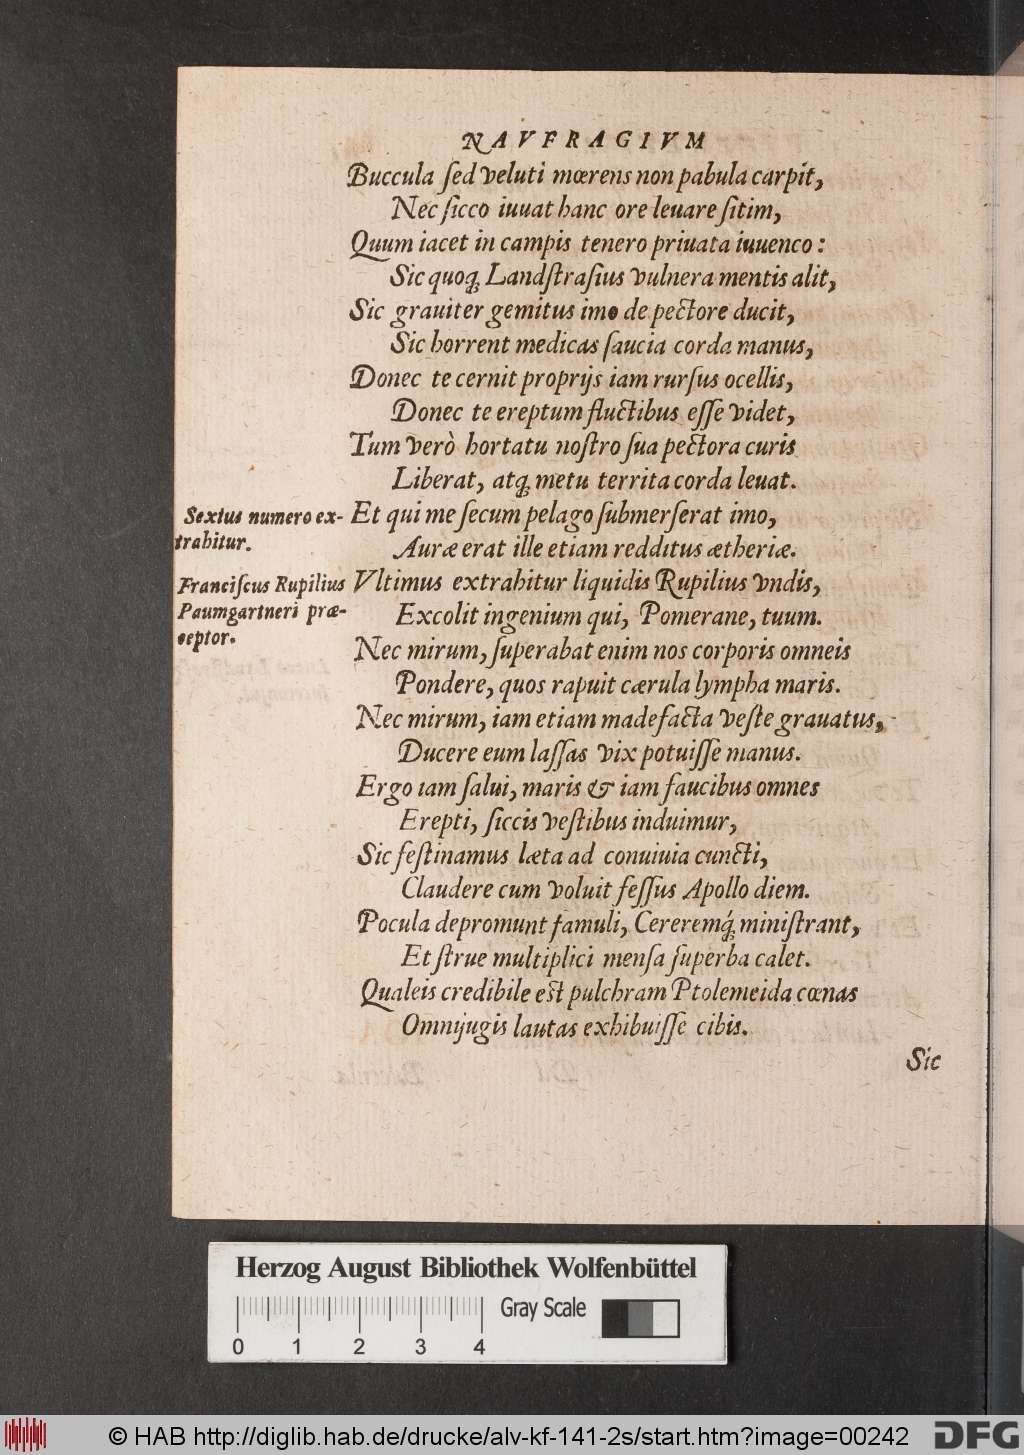 NAVFRAGIVM
Buccula ſed veluti mœrens non pabula carpit,
Nec ſicco iuuat hanc ore leuare ſitim,
Quum iacet in campis tenero priuata iuuenco:
Sic quoq; Landſtraſius vulnera mentis alit,
Sic grauiter gemitus imo de pectore ducit,
Sic horrent medicas ſaucia corda manus,
Donec te cernit proprijs iam rurſus ocellis,
Donec te ereptum fluctibus eſſe videt,
Tum verò hortatu noſtro ſua pectora curis
Liberat, atq; metu territa corda leuat.
Sextus numero ex-
trahitur.
Et qui me ſecum pelago ſubmerſerat imo,
Auræ erat ille etiam redditus ætheriæ.
Franciſcus Rupilius
Paumgartneri præ-
ceptor.
Vltimus extrahitur liquidis Rupilius vndis,
Excolit ingenium qui, Pomerane, tuum.
Nec mirum, ſuperabat enim nos corporis omneis
Pondere, quos rapuit cærula lympha maris.
Nec mirum, iam etiam madefacta veſte grauatus,
Ducere eum laſſas vix potuiſſe manus.
Ergo iam ſalui, maris & iam faucibus omnes
Erepti, ſiccis veſtibus induimur,
Sic feſtinamus læta ad conuiuia cuncti,
Claudere cum voluit feſſus Apollo diem.
Pocula depromunt famuli, Cereremq́; miniſtrant,
Et ſtrue multiplici menſa ſuperba calet.
Qualeis credibile eſt pulchram Ptolemeida cœnas
Omnijugis lautas exhibuiſſe cibis.
Sic
Herzog August Bibliothek Wolfenbüttel
Gray Scale
0 1 2 3 4
© HAB http://diglib.hab.de/drucke/alv-kf-141-2s/start.htm?image=00242
DFG